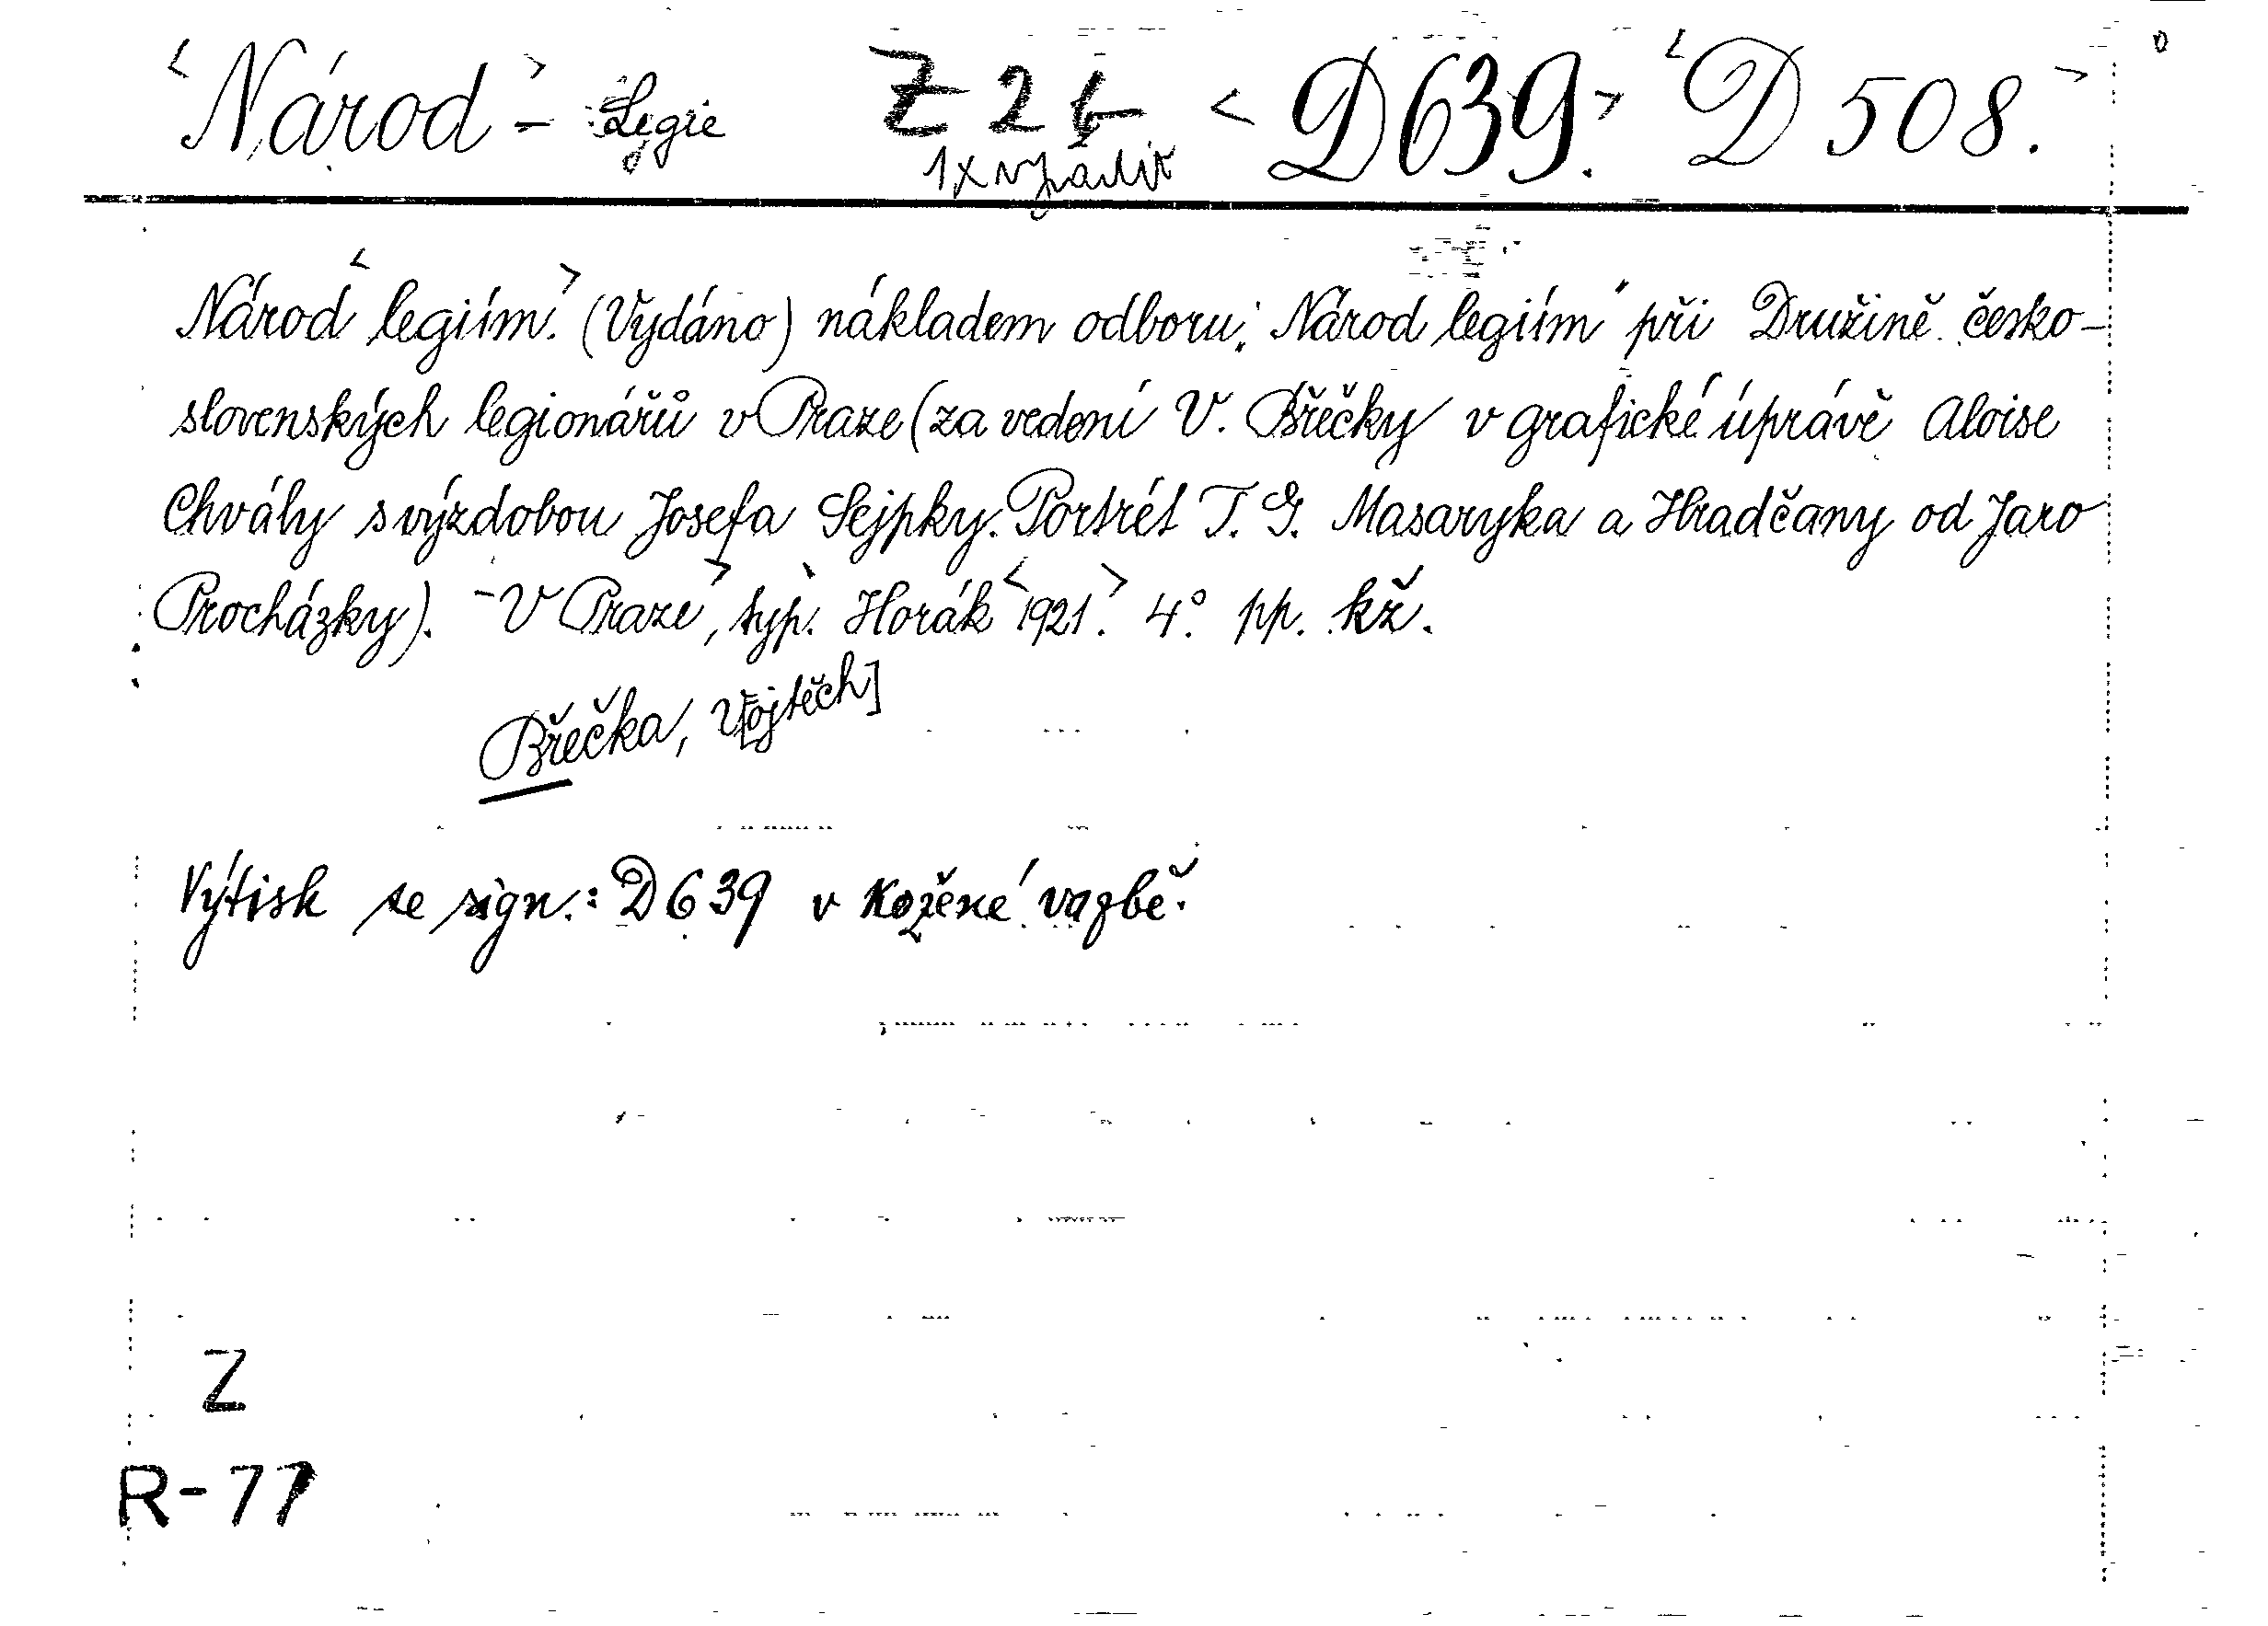 <Národ> - Legie Z 26 <D639.> <D 508.>
1x vyřadit
Národ <legiím.> (Vydáno) nákladem odboru: Národ legiím" při Družině česko-
slovenských legionářů v Praze (za vedení V. Břečky v grafické úprávě Aloise
Chvály s výzdobou Josefa Sejpky. Portrét T. G. Masaryka a Hradčany od Jaro
Procházky). - V Praze, typ. Horák <1921.> 4° pp. kž.
Břečka, V[ojtěch]
Výtisk se sign.: D639 v kožené vazbě.
Z
R-77